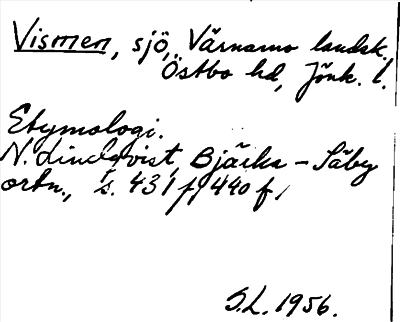 Vismen, sjö, Värnamo landsk.
Östbo hd, Jönk. l.
Etymologi.
N. Lindqvist, Bjärka - Säby
ortn., s. 431 f, 440 f,
S.L. 1956.